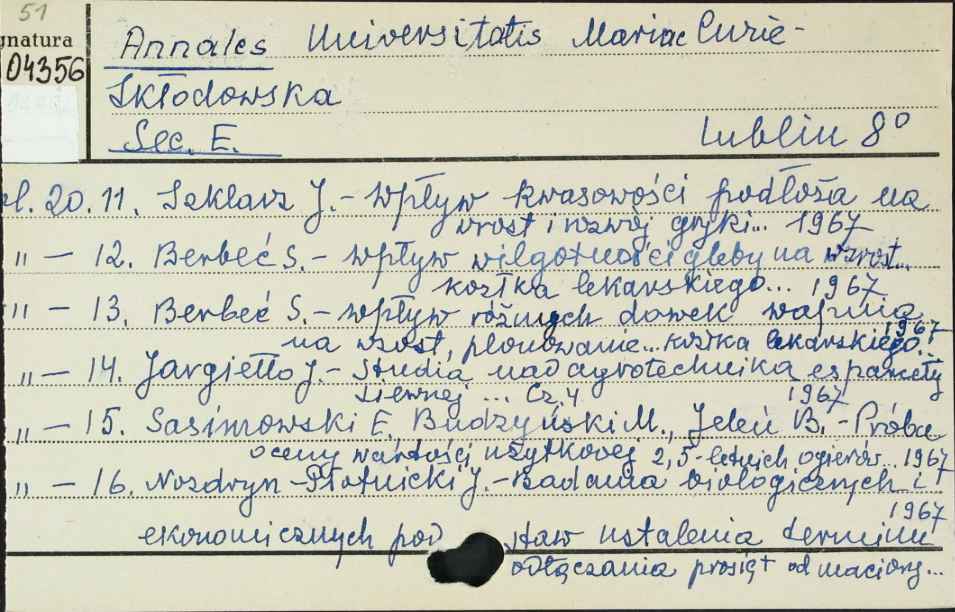 51
gnatura
04356
Annales Universitatis Mariae Curie-
Skłodowska
Sec. E. Lublin 8°
ol. 20. 11. Szklarz J. - Wpływ kwasowości podłoża na
wzrost i rozwój gryki... 1967
" - 12. Berbeć S. - Wpływ wilgotności gleby na wzrost...
kozłka lekarskiego... 1967
" - 13. Berbeć S. - Wpływ różnych dawek wapnia
na wzrost, plonowanie... kozłka lekarskiego... 1967
" - 14. Jargiełło J. - Studia nad agrotechniką esparcety
siewnej ... Cz. 4 1967
" - 15. Sasimowski E. Budzyński M., Jeleń B. - Próba
oceny wartości użytkowej 2,5-letnich ogierów... 1967
" - 16. Nozdryn-Płotnicki J. - Badania biologicznych i
1967
ekonomicznych podstaw ustalenia terminu
odłączania prosiąt od maciory...